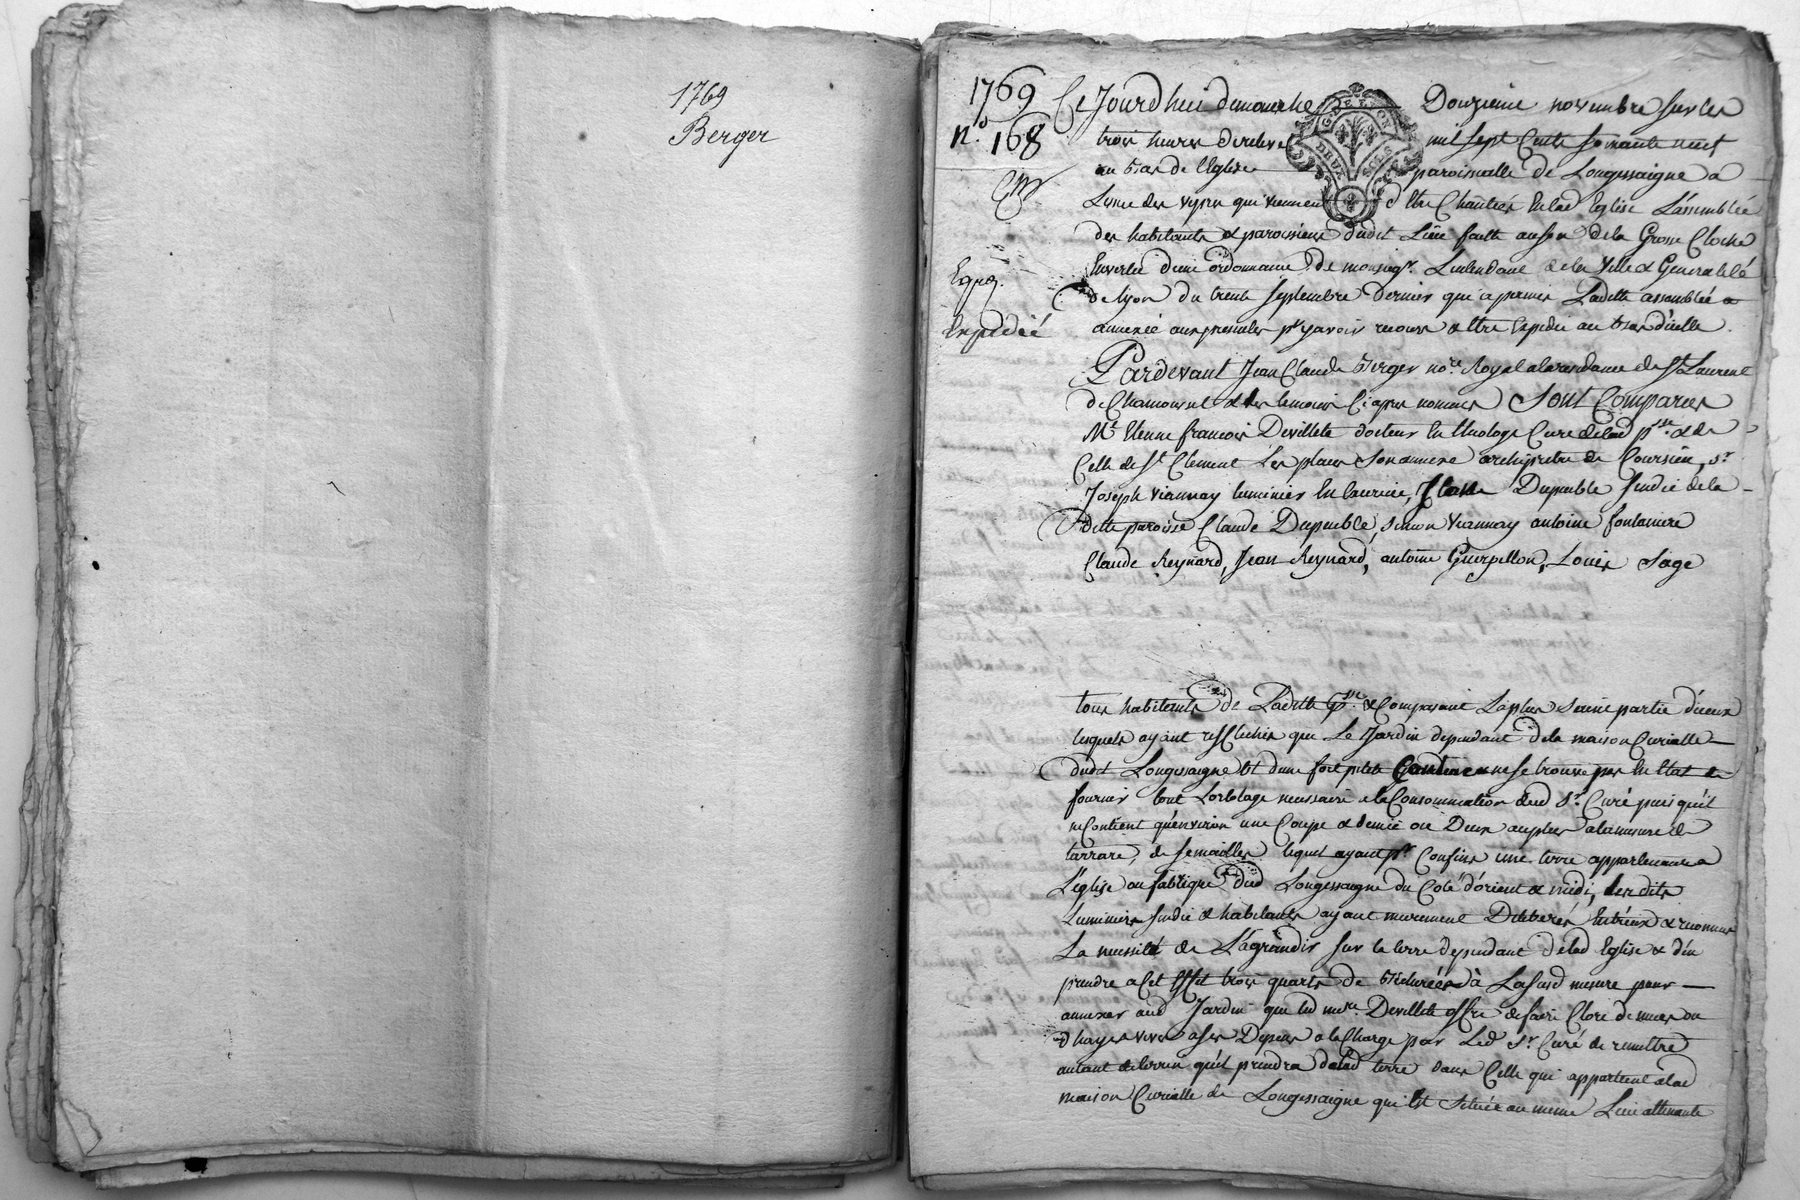 1769
Berger
1769
n.o 168
Expedié
Ce Jourdhui dimanche Douzieme novembre sur les
trois heures de relevé mil sept Cents soixante neuf
au bas de l'Eglise paroissialle de Longessaigne a
L'issue des vepres qui viennent d'Etre Chantées En lad Eglise L'assemblée
des habitants & paroissiens dudit Lieu faitte au son de la Grosse Cloche
En vertu d'une ordonnance de monseigr. L'intendant de la Ville & Generalité
de lyon du trente septembre dernier qui a permis Ladite assemblée a
annexée aux presentes pr y avoir recours & Etre Expedié au bas d'icelle
Pardevant Jean Claude Berger nore. Royal a la residance de St. Laurent
de Chamousset & les temoins Ci apres nommés Sont Comparus
Mre Etienne francois Devillete docteur En theologie Curé de lad psse. & de
Celle de St. Clement Les places Son annexe archiprétre de Coursieu, sr.
Joseph viannay luminier En Dupeuble sindic de la
ditte paroisse Claude Dupeuble, simon viannay antoine fontaniere
Claude Reynard, Jean Reynard, antoine Guerpillon, Louis Sage
tous habitants de Laditte psse. & Composant La plus saine partie d'iceux
lesquels ayant reflechis que Le Jardin dependant de la maison Curialle
dudit Longessaigne Est d'une fort petite ne se trouve pas En Etat de
fournir tout L'ortolage necessaire a la Consommation dud Sr. Curé puis qu'il
ne Contient qu'environ une Coupe & demie ou Deux au plus a la mesure de
tarrare, de semailles lequel ayant pr. Confins une terre appartenante a
L'église ou fabrique dud Longessaigne du Coté d'orient & midi, Les dits
Luminier sindic & habitants ayant murement Deliberés Entreux & reconnus
La necessité de L'agrandir sur la terre dependant de lad Eglise & d'en
prendre a Cet Effet trois quarts de Bicherées à La susd mesure pour
annexer aud Jardin que led mre. Devillete offre de faire Clore de murs ou
d'hayes vives a ses Depens a la Charge par Led Sr. Curé de remettre
autant de terrein qu'il prendra de lad terre dans Celle qui appartient a lad
maison Curialle de Longessaigne qui Est Située au meme Lieu attenante